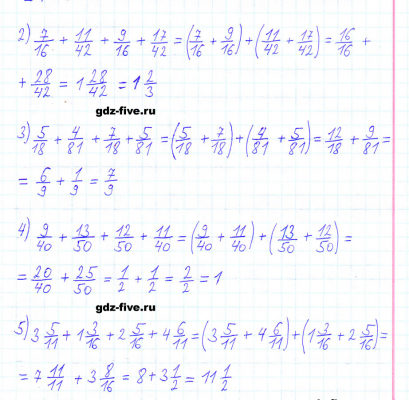 2) 7/16 + 11/42 + 9/16 + 17/42 = (7/16 + 9/16) + (11/42 + 17/42) = 16/16 +
+ 28/42 = 1 28/42 = 1 2/3
gdz-five.ru
3) 5/18 + 4/81 + 7/18 + 5/81 = (5/18 + 7/18) + (4/81 + 5/81) = 12/18 + 9/81 =
= 6/9 + 1/9 = 7/9
gdz-five.ru
4) 9/40 + 13/50 + 12/50 + 11/40 = (9/40 + 11/40) + (13/50 + 12/50) =
= 20/40 + 25/50 = 1/2 + 1/2 = 2/2 = 1
gdz-five.ru
5) 3 5/11 + 1 3/16 + 2 5/16 + 4 6/11 = (3 5/11 + 4 6/11) + (1 3/16 + 2 5/16) =
= 7 11/11 + 3 8/16 = 8 + 3 1/2 = 11 1/2